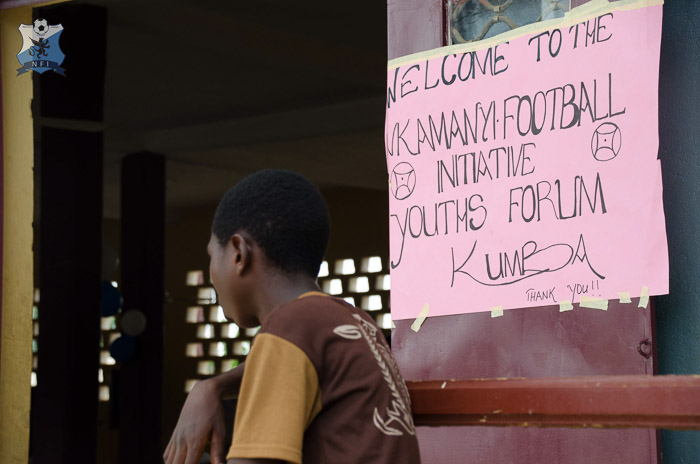 NFI
WELCOME TO THE
NKAMANYI.FOOTBALL
INITIATIVE
YOUTHS FORUM
KUMBA
THANK YOU!!